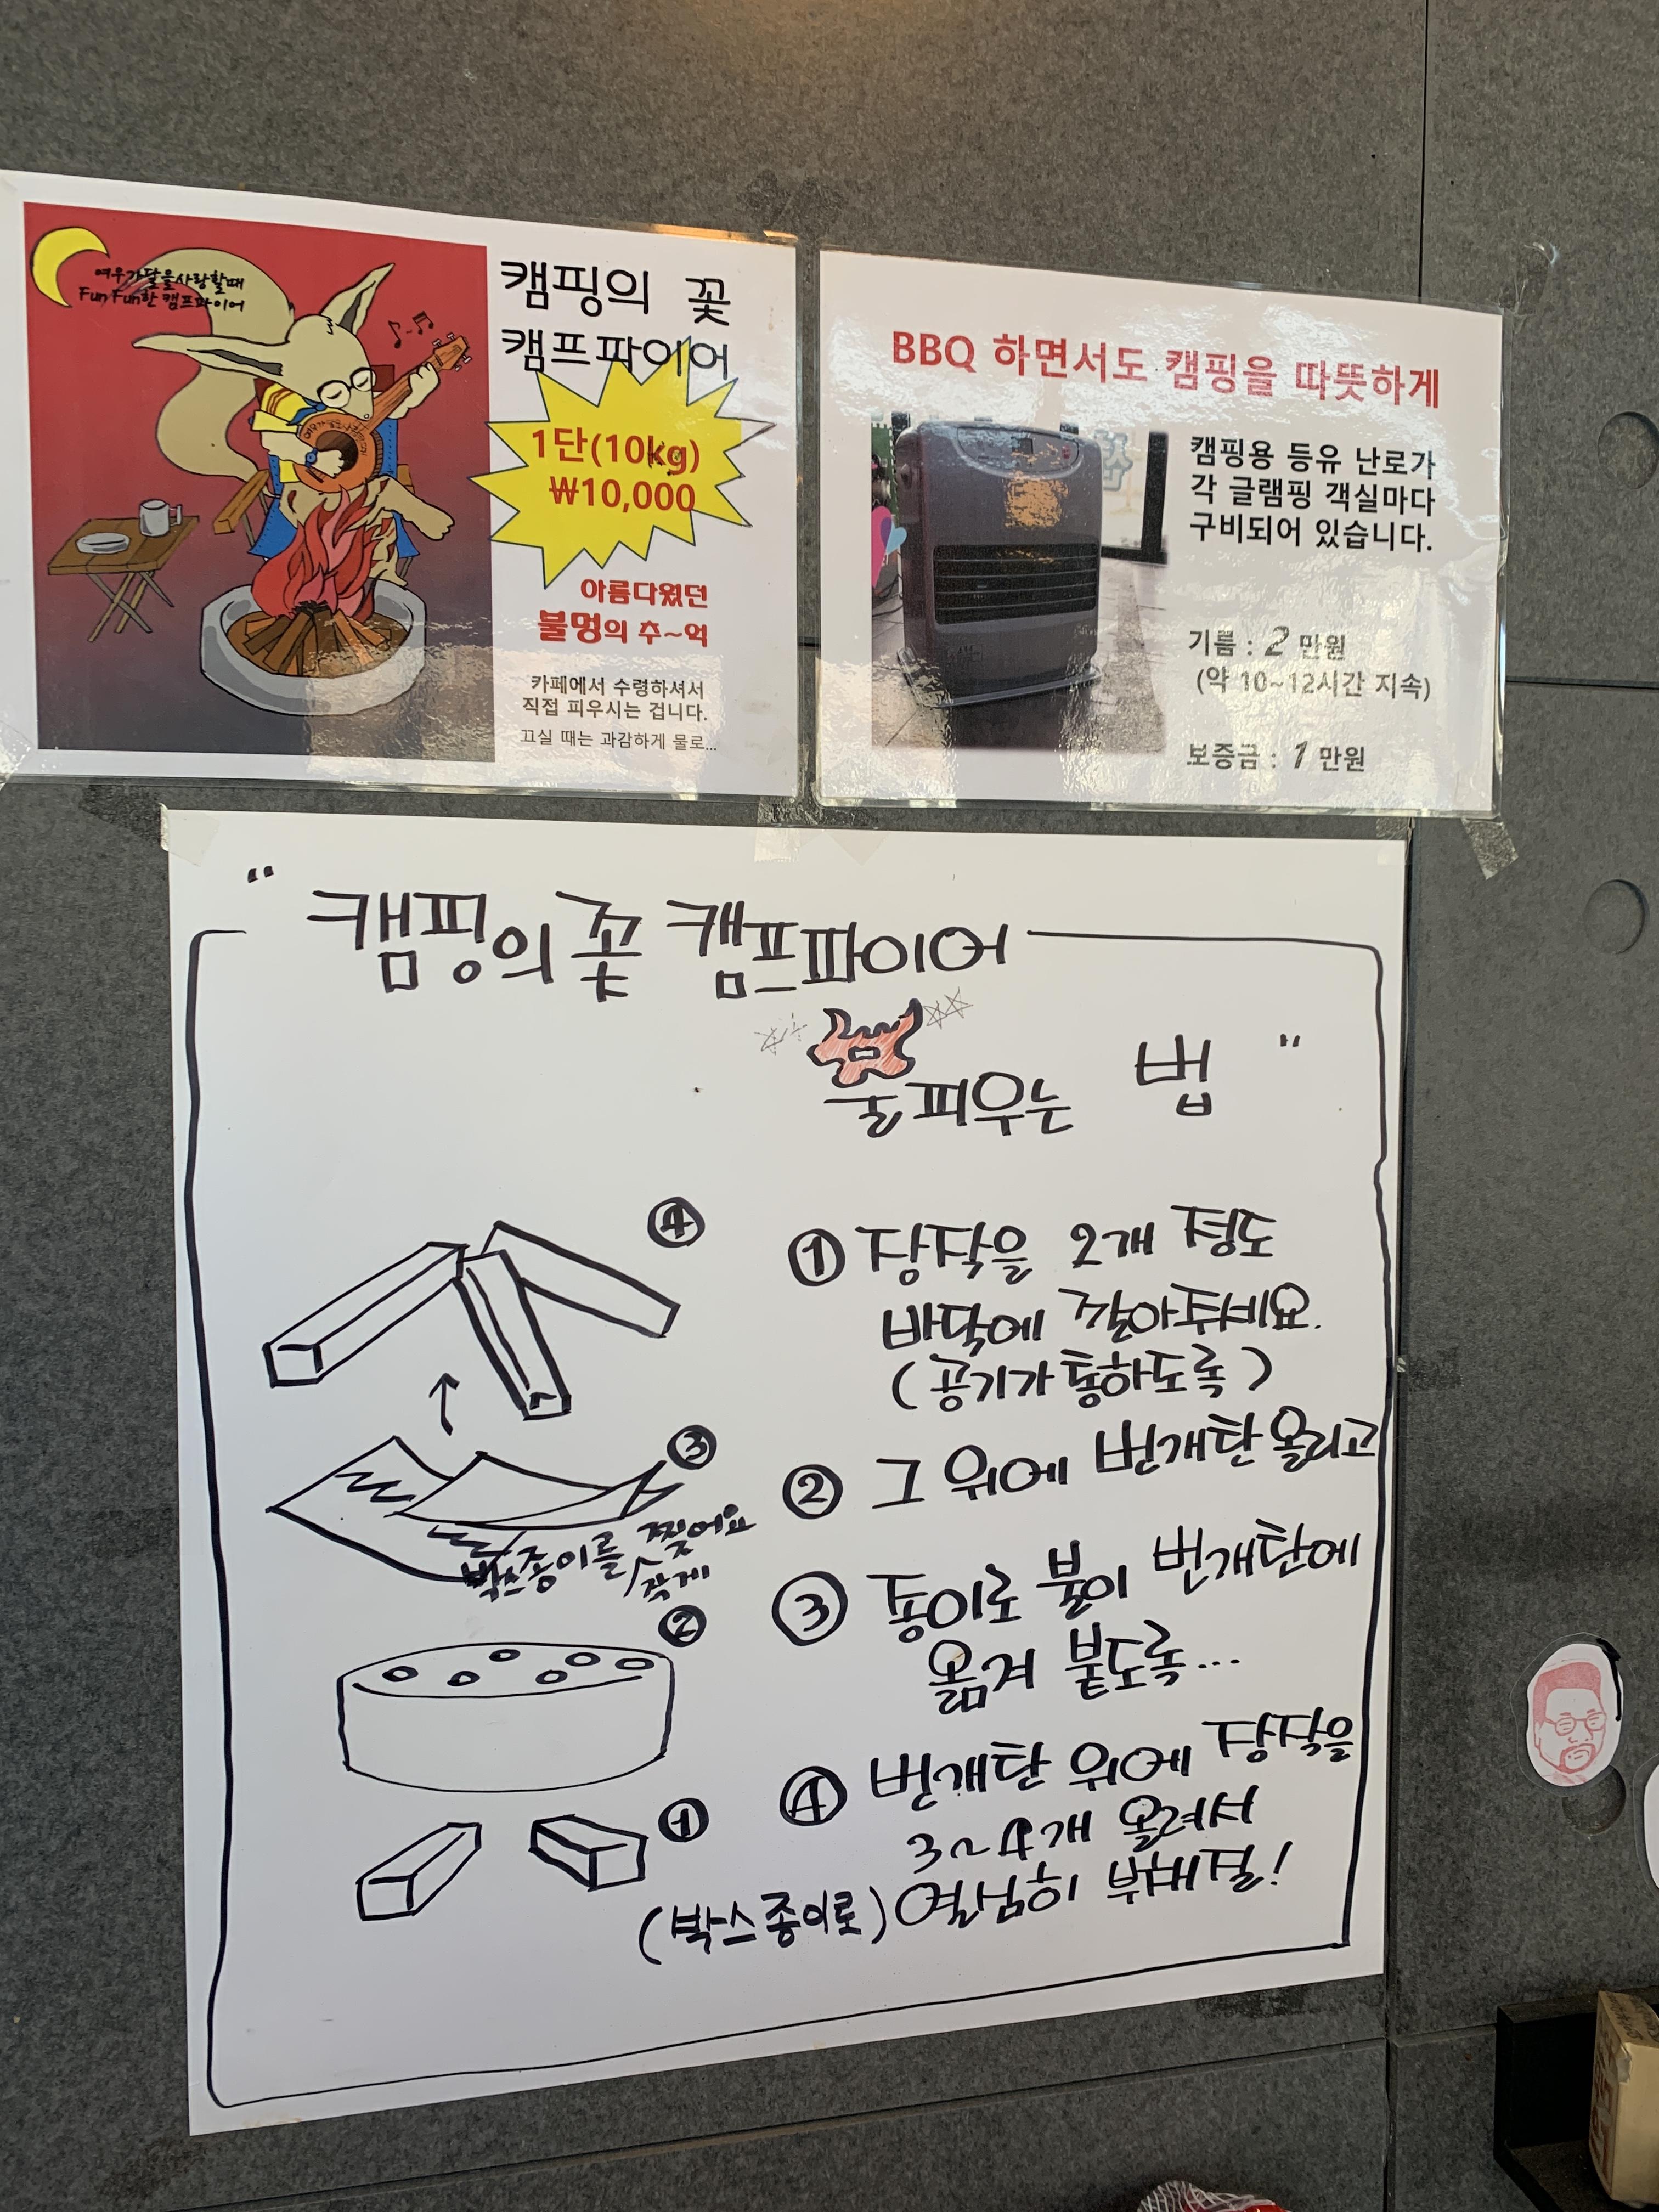 여우가달을사랑할때
Fun Fun한 캠프파이어
캠핑의 꽃
캠프파이어
1단(10kg)
₩10,000
아름다웠던
불멍의 추~억
카페에서 수령하셔서
직접 피우시는 겁니다.
끄실 때는 과감하게 물로...
BBQ 하면서도 캠핑을 따뜻하게
캠핑용 등유 난로가
각 글램핑 객실마다
구비되어 있습니다.
기름 : 2 만원
(약 10~12시간 지속)
보증금 : 1 만원
"캠핑의 꽃 캠프파이어
불피우는 법"
① 장작을 2개 정도
바닥에 깔아주세요.
(공기가 통하도록)
② 그 위에 번개탄 올리고
③ 종이로 불이 번개탄에
옮겨 붙도록...
④ 번개탄 위에 장작을
3~4개 올려서
(박스종이로) 열심히 부채질!
④
③
박스종이를 찢어요
작게
②
①